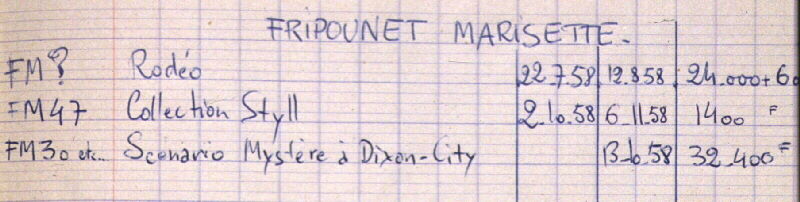 FRIPOUNET MARISETTE.
FM? Rodéo 22.7.58 12.8.58 24.000+60
FM47 Collection Styll 2.10.58 6.11.58 1400 F
FM30 etc... Scenario Mystère à Dixon-City 13.6.58 32.400 F